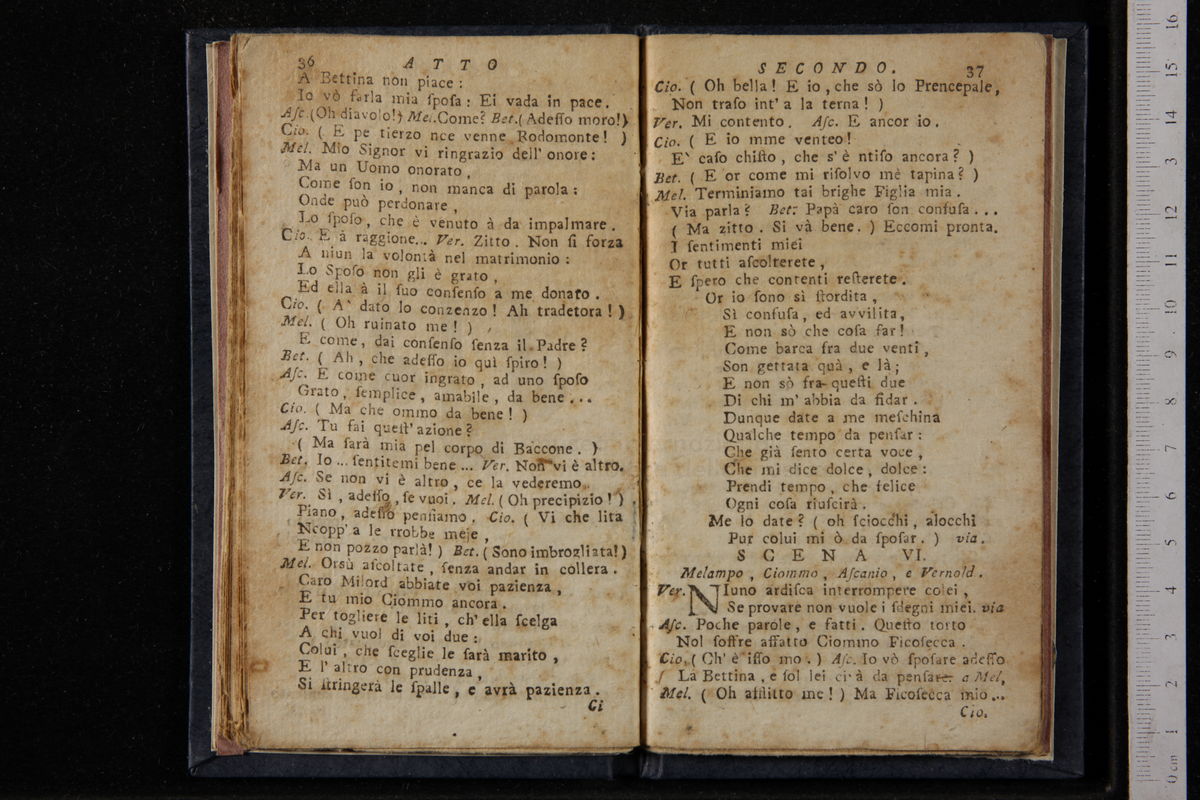 36 ATTO
A Bettina non piace :
Io vò farla mia ſpoſa : Ei vada in pace.
Aſc. (Oh diavolo!) Mel. Come? Bet. (Adeſſo moro!)
Cio. ( E pe tierzo nce venne Rodomonte! )
Mel. Mio Signor vi ringrazio dell' onore :
Ma un Uomo onorato ,
Come ſon io , non manca di parola :
Onde può perdonare ,
Lo ſpoſo , che è venuto à da impalmare .
Cio. E à raggione... Ver. Zitto . Non ſi forza
A niun la volontà nel matrimonio :
Lo Spoſo non gli è grato ,
Ed ella à il ſuo conſenſo a me donato .
Cio. ( A` dato lo conzenzo ! Ah tradetora ! )
Mel. ( Oh ruinato me ! )
E come, dai conſenſo ſenza il Padre ?
Bet. ( Ah , che adeſſo io quì ſpiro ! )
Aſc. E come cuor ingrato , ad uno ſpoſo
Grato , ſemplice , amabile , da bene . . .
Cio. ( Ma che ommo da bene ! )
Aſc. Tu fai queſt' azione ?
( Ma ſarà mia pel corpo di Baccone . )
Bet. Io ... ſentitemi bene ... Ver. Non vi è altro.
Aſc. Se non vi è altro , ce la vederemo .
Ver. Sì , adeſſo , ſe vuoi . Mel. ( Oh precipizio ! )
Piano , adeſſo penſiamo . Cio. ( Vi che lita
Ncopp' a le rrobbe meje ,
E non pozzo parlà! ) Bet. ( Sono imbrogliata!)
Mel. Orsù aſcoltate , ſenza andar in collera .
Caro Milord abbiate voi pazienza ,
E tu mio Ciommo ancora .
Per togliere le liti , ch' ella ſcelga
A chi vuol di voi due :
Colui , che ſceglie le ſarà marito ,
E l' altro con prudenza ,
Si ſtringerà le ſpalle , e avrà pazienza .
Ci
SECONDO. 37
Cio. ( Oh bella ! E io , che sò lo Prencepale,
Non traſo int' a la terna ! )
Ver. Mi contento . Aſc. E ancor io .
Cio. ( E io mme venteo !
E` caſo chiſto , che s' è ntiſo ancora ? )
Bet. ( E or come mi riſolvo mè tapina ? )
Mel. Terminiamo tai brighe Figlia mia .
Via parla ? Bet: Papà caro ſon confuſa . . .
( Ma zitto . Si và bene . ) Eccomi pronta.
I ſentimenti miei
Or tutti aſcolterete ,
E ſpero che contenti reſterete .
Or io ſono sì ſtordita ,
Sì confuſa , ed avvilita,
E non sò che coſa far !
Come barca fra due venti ,
Son gettata quà , e là ;
E non sò fra queſti due
Di chi m' abbia da fidar .
Dunque date a me meſchina
Qualche tempo da penſar :
Che già ſento certa voce ,
Che mi dice dolce , dolce :
Prendi tempo , che felice
Ogni coſa riuſcirà .
Me lo date ? ( oh ſciocchi , alocchi
Pur colui mi ò da ſpoſar . ) via .
SCENA VI.
Melampo , Ciommo , Aſcanio , e Vernold .
Ver. NIuno ardiſca interrompere colei ,
Se provare non vuole i ſdegni miei. via
Aſc. Poche parole , e fatti . Queſto torto
Nol ſoffre affatto Ciommo Ficoſecca .
Cio. ( Ch' è iſſo mo . ) Aſc. Io vò ſpoſare adeſſo
La Bettina , e ſol lei ci à da penſare a Mel.
Mel. ( Oh afflitto me ! ) Ma Ficoſecca mio ...
Cio.
0 cm 1 2 3 4 5 6 7 8 9 10 11 12 13 14 15 16